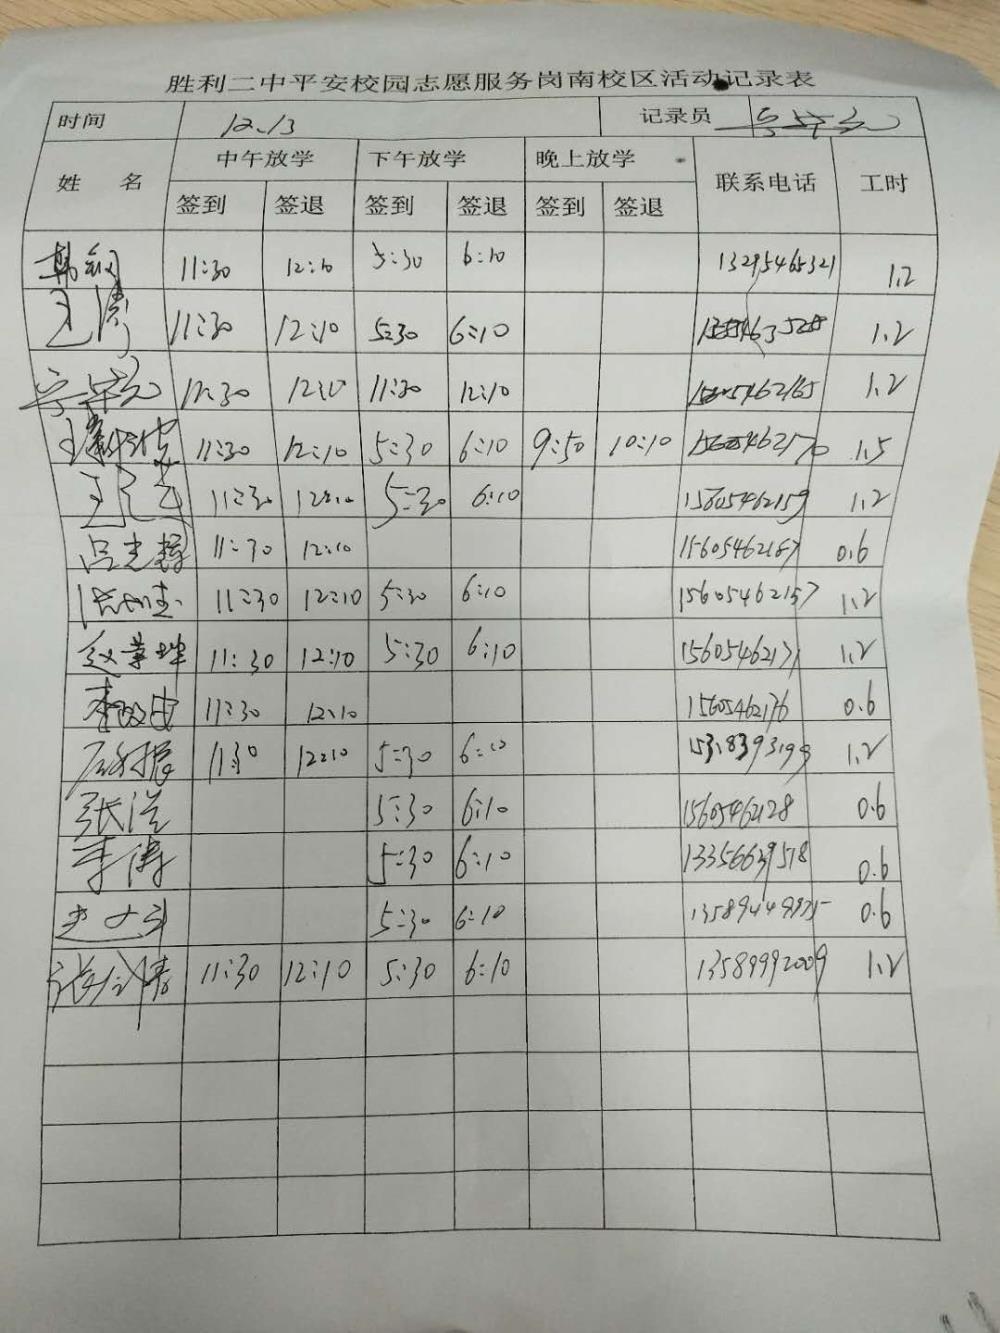 胜利二中平安校园志愿服务岗南校区活动记录表
时间 12.13 记录员
姓 名 中午放学 下午放学 晚上放学 联系电话 工时
签到 签退 签到 签退 签到 签退
11:30 12:10 5:30 6:10 13295465321 1.2
王涛 11:30 12:10 5:30 6:10 1.2
12:30 12:10 11:30 12:10 15605462165 1.2
11:30 12:10 5:30 6:10 9:50 10:10 15605462170 1.5
11:30 12:10 5:30 6:10 15605462159 1.2
吕光辉 11:30 12:10 15605462167 0.6
11:30 12:10 5:30 6:10 15605462157 1.2
赵华坤 11:30 12:10 5:30 6:10 15605462171 1.2
11:30 12:10 15605462176 0.6
11:30 12:10 5:30 6:10 15318393199 1.2
张浩 5:30 6:10 15605462128 0.6
李涛 5:30 6:10 13356639518 0.6
5:30 6:10 0.6
11:30 12:10 5:30 6:10 13589992009 1.2